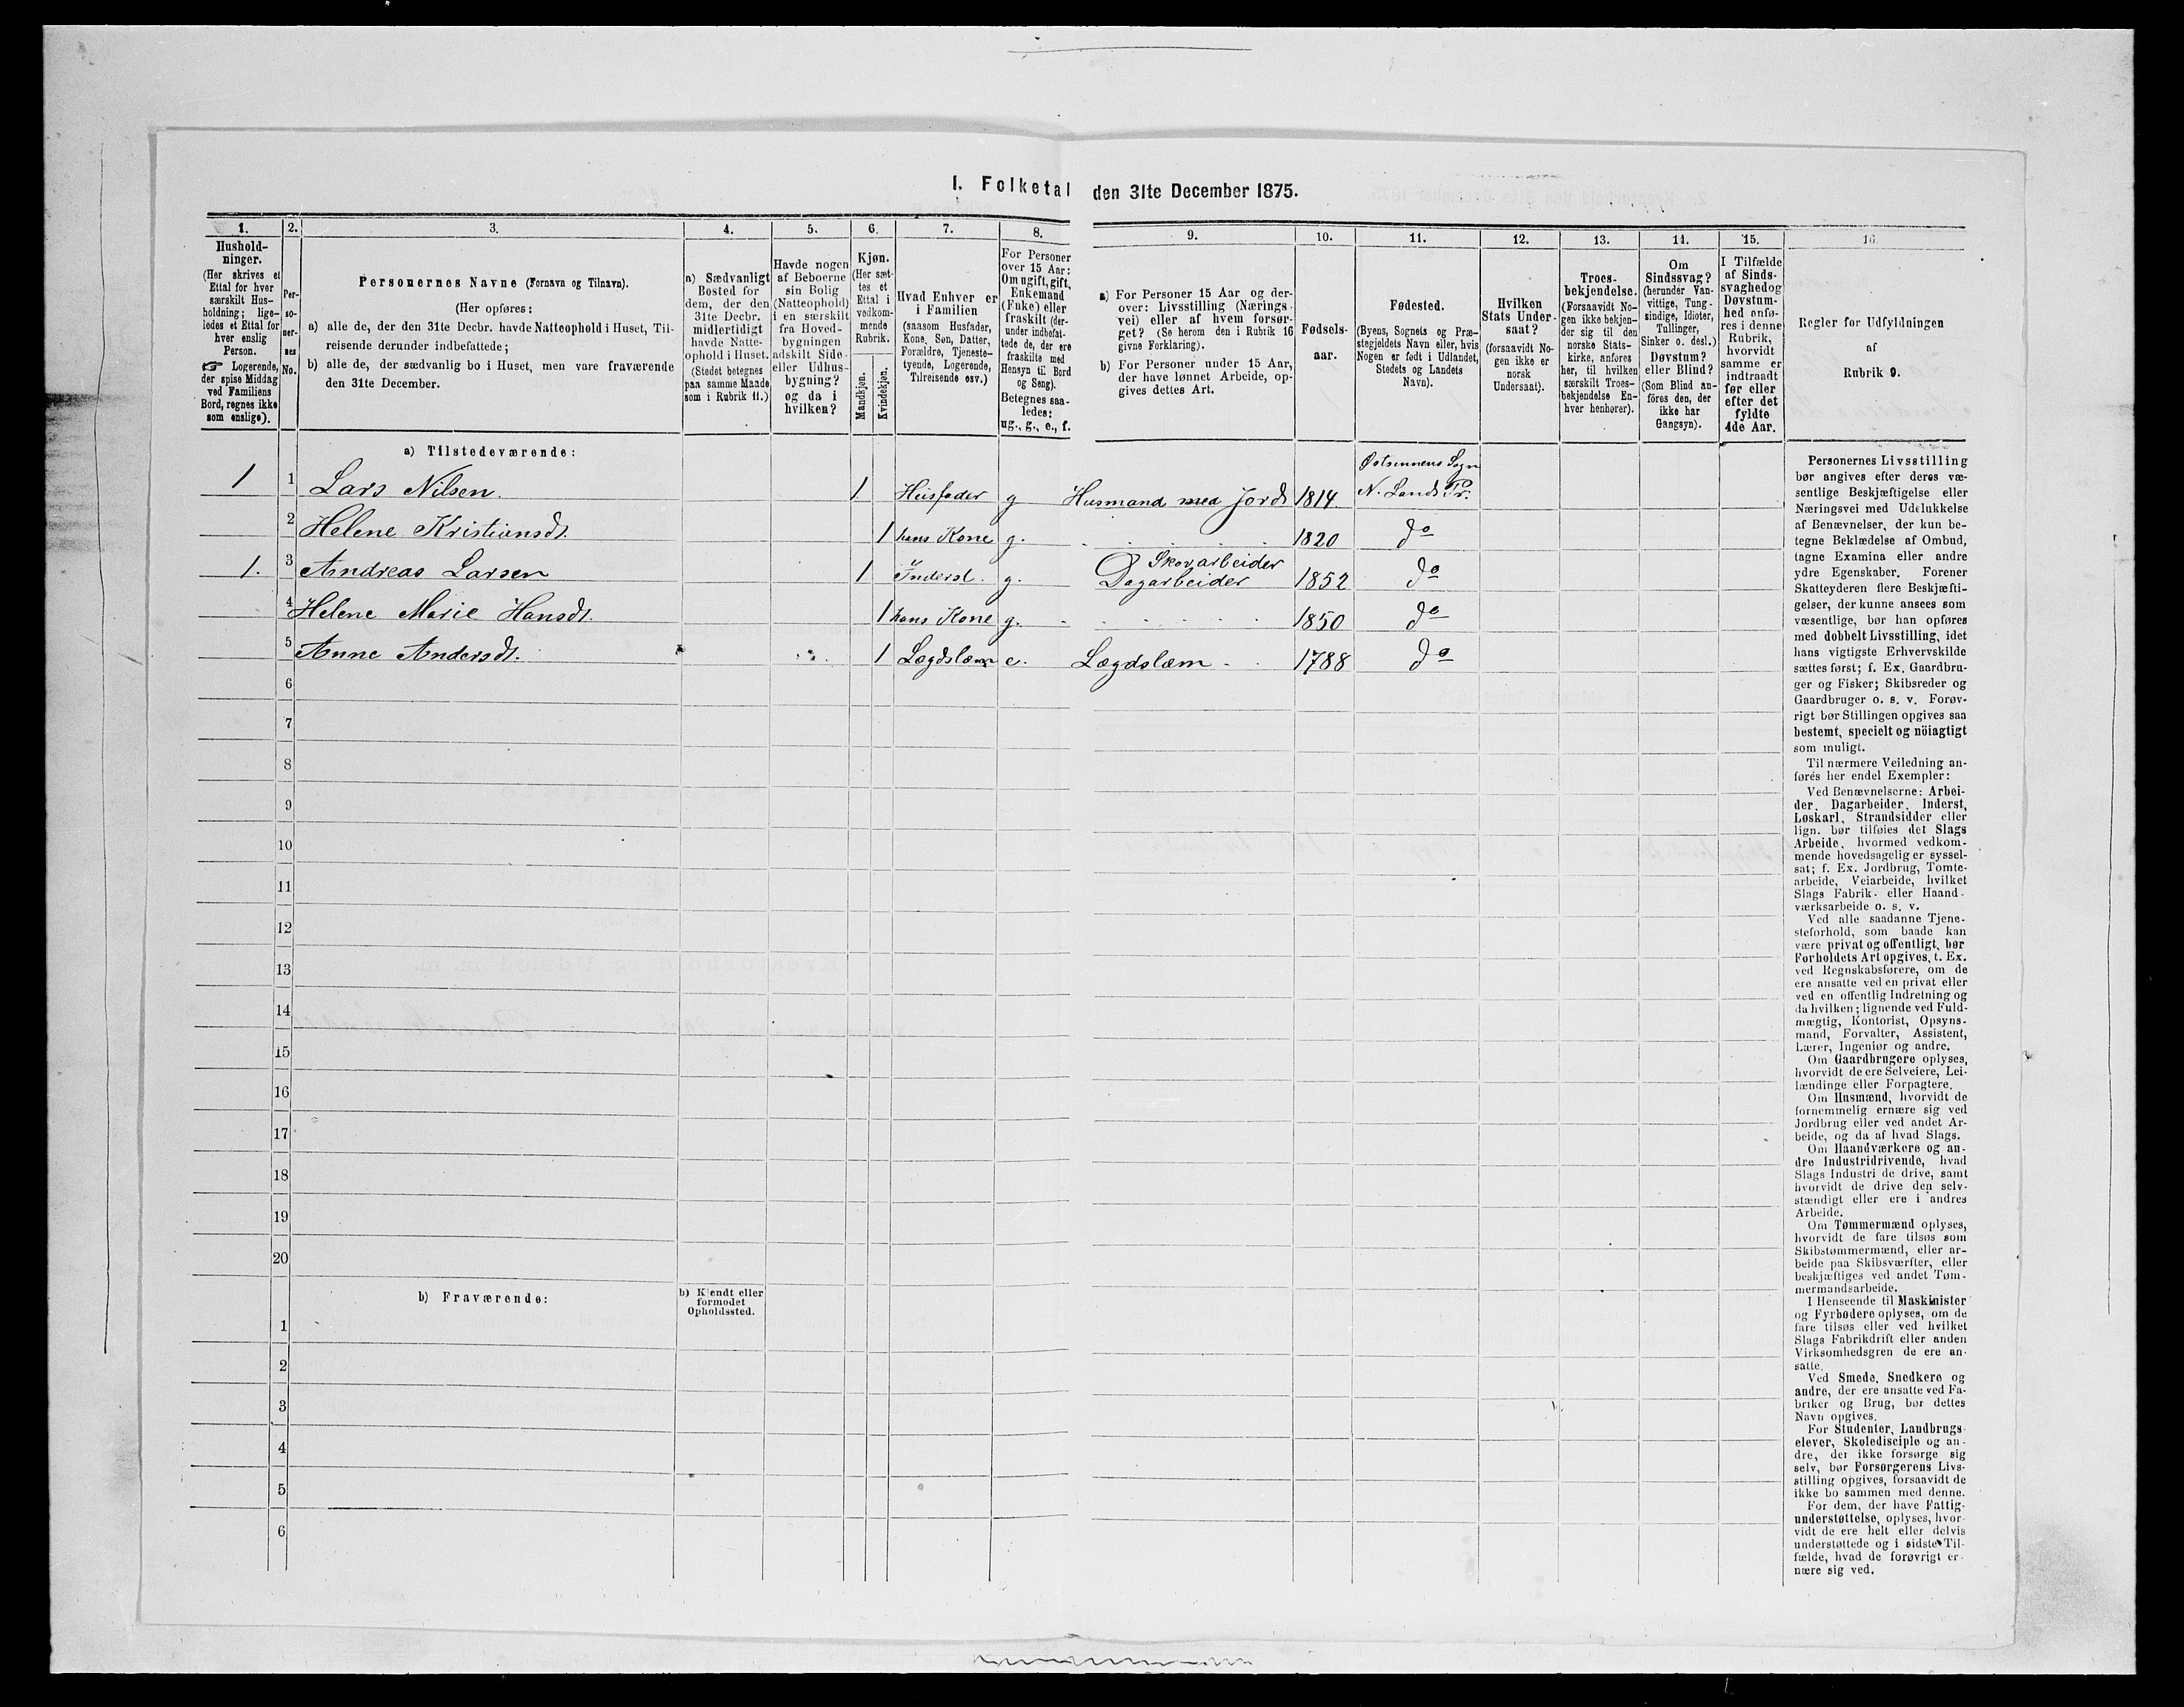 I. Folketal den 31te December 1875.
1.
Hushold-
ninger.
(Her skrives et
Ettal for hver
særskilt Hus-
holdning; lige-
ledes et Ettal for
hver enslig
Person.
☞ Logerende,
der spise Middag
ved Familiens
Bord, regnes ikke
som enslige).
2.
Per-
so-
ner-
nes
No.
3.
Personernes Navne (Fornavn og Tilnavn).
(Her opføres:
a) alle de, der den 31te Decbr. havde Natteophold i Huset, Til-
reisende derunder indbefattede;
b) alle de, der sædvanlig bo i Huset, men vare fraværende
den 31te December.
4.
a) Sædvanligt
Bosted for
dem, der den
31te Decbr.
midlertidigt
havde Natte-
ophold i Huset.
(Stedet betegnes
paa samme Maade
som i Rubrik 11.)
5.
Havde nogen
af Beboerne
sin Bolig
(Natteophold)
i en særskilt
fra Hoved-
bygningen
adskilt Side-
eller Udhus-
bygning?
og da i
hvilken?
6.
Kjøn.
(Her sæt-
tes et
Ettal i
vedkom-
mende
Rubrik.
Mandkjøn.
Kvindekjøn.
7.
Hvad Enhver er
i Familien
(saasom Husfader,
Kone, Søn, Datter,
Forældre, Tjeneste-
tyende, Logerende,
Tilreisende osv.)
8.
For Personer
over 15 Aar:
Om ugift, gift,
Enkemand
(Enke) eller
fraskilt (der-
under indbefat-
tede de, der ere
fraskilte med
Hensyn til Bord
og Seng).
Betegnes saa-
ledes:
ug., g., e., f.
9.
a) For Personer 15 Aar og der-
over: Livsstilling (Nærings-
vei) eller af hvem forsør-
get? (Se herom den i Rubrik 16
givne Forklaring).
b) For Personer under 15 Aar,
der have lønnet Arbeide, op-
gives dettes Art.
10.
Fødsels-
aar.
11.
Fødested.
(Byens, Sognets og Præ-
stegjeldets Navn eller, hvis
Nogen er født i Udlandet,
Stedets og Landets
Navn).
12.
Hvilken
Stats Under-
saat?
(forsaavidt No-
gen ikke er
norsk
Undersaat).
13.
Troes-
bekjendelse.
(Forsaavidt No-
gen ikke bekjen-
der sig til den
norske Stats-
kirke, anføres
her, til hvilken
særskilt Troes-
bekjendelse En-
hver henhører).
14.
Om
Sindssvag?
(herunder Van-
vittige, Tung-
sindige, Idioter,
Tullinger,
Sinker o. desl.)
Døvstum?
eller Blind?
(Som Blind an-
føres den, der
ikke har
Gangsyn).
15.
I Tilfælde
af Sinds-
svaghedog
Døvstum-
hed anfø-
res i denne
Rubrik,
hvorvidt
samme er
indtraadt
før eller
efter det
fyldte
4de Aar.
16.
Regler for Udfyldningen
af
Rubrik 9.
a) Tilstedeværende:
1 1 Lars Nilsen. 1 Husfader g Husmand med Jord 1814. Østsinnens Sogn
N. Lands Pr.
2 Helene Kristiansdt. 1 hans Kone g. 1820 do
1. 3 Andreas Larsen 1 Inderst. g. Skovarbeider
Dagarbeider 1852 do
4 Helene Marie Hansdt. 1 hans Kone g. 1850 do
5 Anne Andersdt. 1 Lægdslem e. Lægdslem 1788 do
6
7
8
9
10
11
12
13
14
15
16
17
18
19
20
b) Fraværende:
b) Kjendt eller
formodet
Opholdssted.
1
2
3
4
5
6
Personernes Livsstilling
bør angives efter deres væ-
sentlige Beskjæftigelse eller
Næringsvei med Udelukkelse
af Benævnelser, der kun be-
tegne Beklædelse af Ombud,
tagne Examina eller andre
ydre Egenskaber. Forener
Skatteyderen flere Beskjæfti-
gelser, der kunne ansees som
væsentlige, bør han opføres
med dobbelt Livsstilling, idet
hans vigtigste Erhvervskilde
sættes først; f. Ex. Gaardbru-
ger og Fisker; Skibsreder og
Gaardbruger o. s. v. Forøv-
rigt bør Stillingen opgives saa
bestemt, specielt og nöiagtigt
som muligt.
Til nærmere Veiledning an-
føres her endel Exempler:
Ved Benævnelserne: Arbei-
der, Dagarbeider, Inderst,
Løskarl, Strandsidder eller
lign. bør tilføies det Slags
Arbeide, hvormed vedkom-
mende hovedsagelig er syssel-
sat; f. Ex. Jordbrug, Tomte-
arbeide, Veiarbeide, hvilket
Slags Fabrik- eller Haand-
værksarbeide o. s. v.
Ved alle saadanne Tjene-
steforhold, som baade kan
være privat og offentligt, bør
Forholdets Art opgives, t. Ex.
ved Regnskabsførere, om de
ere ansatte ved en privat eller
ved en offentlig Indretning og
da hvilken; lignende ved Fuld-
mægtig, Kontorist, Opsyns-
mand, Forvalter, Assistent,
Lærer, Ingeniør og andre.
Om Gaardbrugere oplyses,
hvorvidt de ere Selveiere, Lei-
lændinge eller Forpagtere.
Om Husmænd, hvorvidt de
fornemmelig ernære sig ved
Jordbrug eller ved andet Ar-
beide, og da af hvad Slags.
Om Haandværkere og an-
dre Industridrivende, hvad
Slags Industri de drive, samt
hvorvidt de drive den selv-
stændigt eller ere i andres
Arbeide.
Om Tømmermænd oplyses,
hvorvidt de fare tilsøs som
Skibstømmermænd, eller ar-
beide paa Skibsværfter, eller
beskjæftiges ved andet Tøm-
mermandsarbeide.
I Henseende til Maskinister
og Fyrbødere oplyses, om de
fare tilsøs eller ved hvilket
Slags Fabrikdrift eller anden
Virksomhedsgren de ere an-
satte.
Ved Smede, Snedkere og
andre, der ere ansatte ved Fa-
briker og Brug, bør dettes
Navn opgives.
For Studenter, Landbrugs-
elever, Skoledisciple og an-
dre, der ikke forsørge sig
selv, bør Forsørgerens Livs-
stilling opgives, forsaavidt de
ikke bo sammen med denne.
For dem, der have Fattig-
understøttelse, oplyses, hvor-
vidt de ere helt eller delvis
understøttede og i sidste Til-
fælde, hvad de forøvrigt er-
nære sig ved.